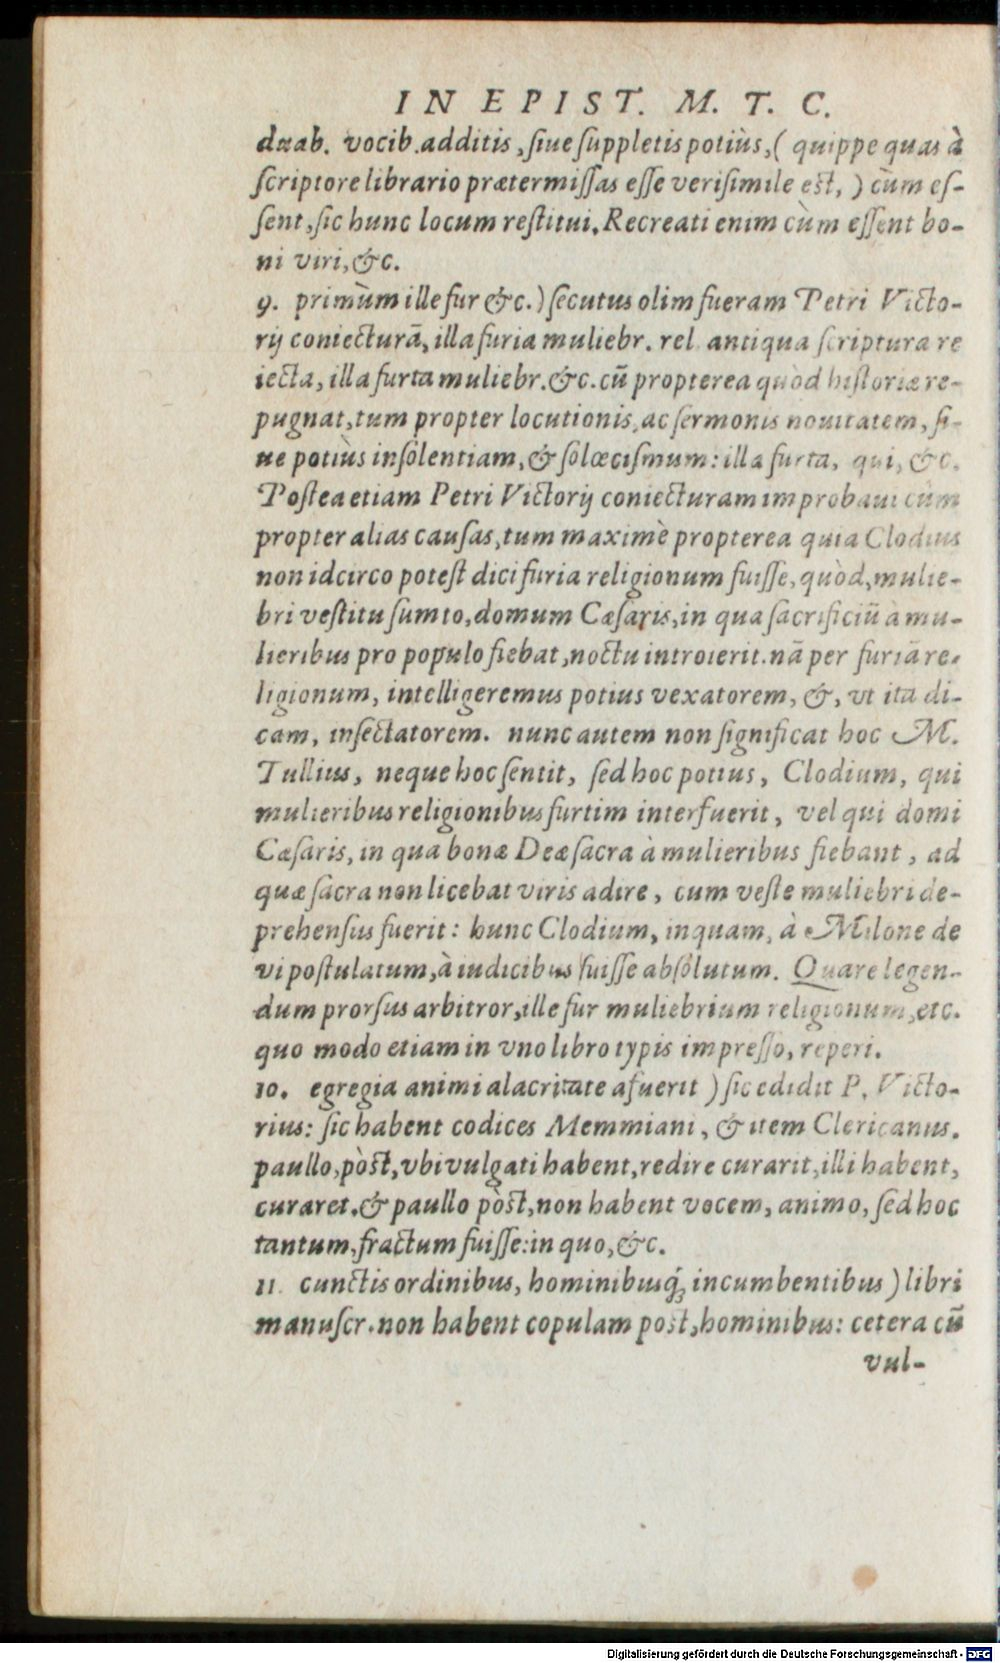 IN EPIST. M. T. C.
duab. vocib. additis, siue suppletis potiùs, ( quippe quas à
scriptore librario prætermissas esse verisimile est, ) cùm es-
sent, sic hunc locum restitui. Recreati enim cùm essent bo-
ni viri, &c.
9. primùm ille fur &c. ) secutus olim fueram Petri Victo-
rij coniecturā, illa furia muliebr. rel. antiqua scriptura re
iecta, illa furta muliebr. &c. cū propterea quòd historiæ re-
pugnat, tum propter locutionis, ac sermonis nouitatem, si-
ue potiùs insolentiam, & solœcismum: illa furta, qui, &c.
Postea etiam Petri Victorij coniecturam improbaui cùm
propter alias causas, tum maximè propterea quia Clodius
non idcirco potest dici furia religionum fuisse, quòd, mulie-
bri vestitu sumto, domum Cæsaris, in qua sacrificiū à mu-
lieribus pro populo fiebat, noctu introierit. nā per furiā re-
ligionum, intelligeremus potius vexatorem, &, vt ita di-
cam, insectatorem. nunc autem non significat hoc M.
Tullius, neque hoc sentit, sed hoc potius, Clodium, qui
mulieribus religionibus furtim interfuerit, vel qui domi
Cæsaris, in qua bonæ Deæ sacra à mulieribus fiebant, ad
quæ sacra non licebat viris adire, cum veste muliebri de-
prehensus fuerit: hunc Clodium, inquam, à Milone de
vi postulatum, à iudicibus fuisse absolutum. Quare legen-
dum prorsus arbitror, ille fur muliebrium religionum, etc.
quo modo etiam in vno libro typis impresso, reperi.
10. egregia animi alacritate afuerit ) sic edidit P. Victo-
rius: sic habent codices Memmiani, & item Clericanus.
paullo, pòst, vbi vulgati habent, redire curarit, illi habent,
curaret. & paullo pòst, non habent vocem, animo, sed hoc
tantum, fractum fuisse: in quo, &c.
11. cunctis ordinibus, hominibusq́; incumbentibus ) libri
manuscr. non habent copulam post, hominibus: cetera cū
vul-
Digitalisierung gefördert durch die Deutsche Forschungsgemeinschaft - DFG